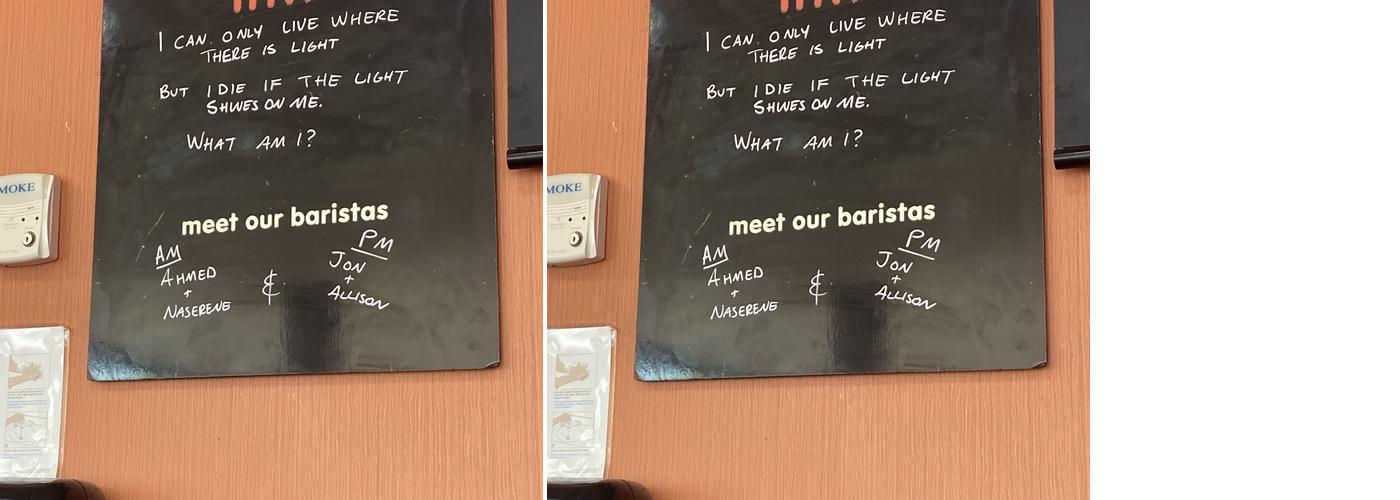 I CAN ONLY LIVE WHERE
THERE IS LIGHT
BUT I DIE IF THE LIGHT
SHINES ON ME.
WHAT AM I?
meet our baristas
AM
AHMED
+
NASERENE
&
PM
JON
+
ALLISON
MOKE
I CAN ONLY LIVE WHERE
THERE IS LIGHT
BUT I DIE IF THE LIGHT
SHINES ON ME.
WHAT AM I?
meet our baristas
AM
AHMED
+
NASERENE
&
PM
JON
+
ALLISON
MOKE